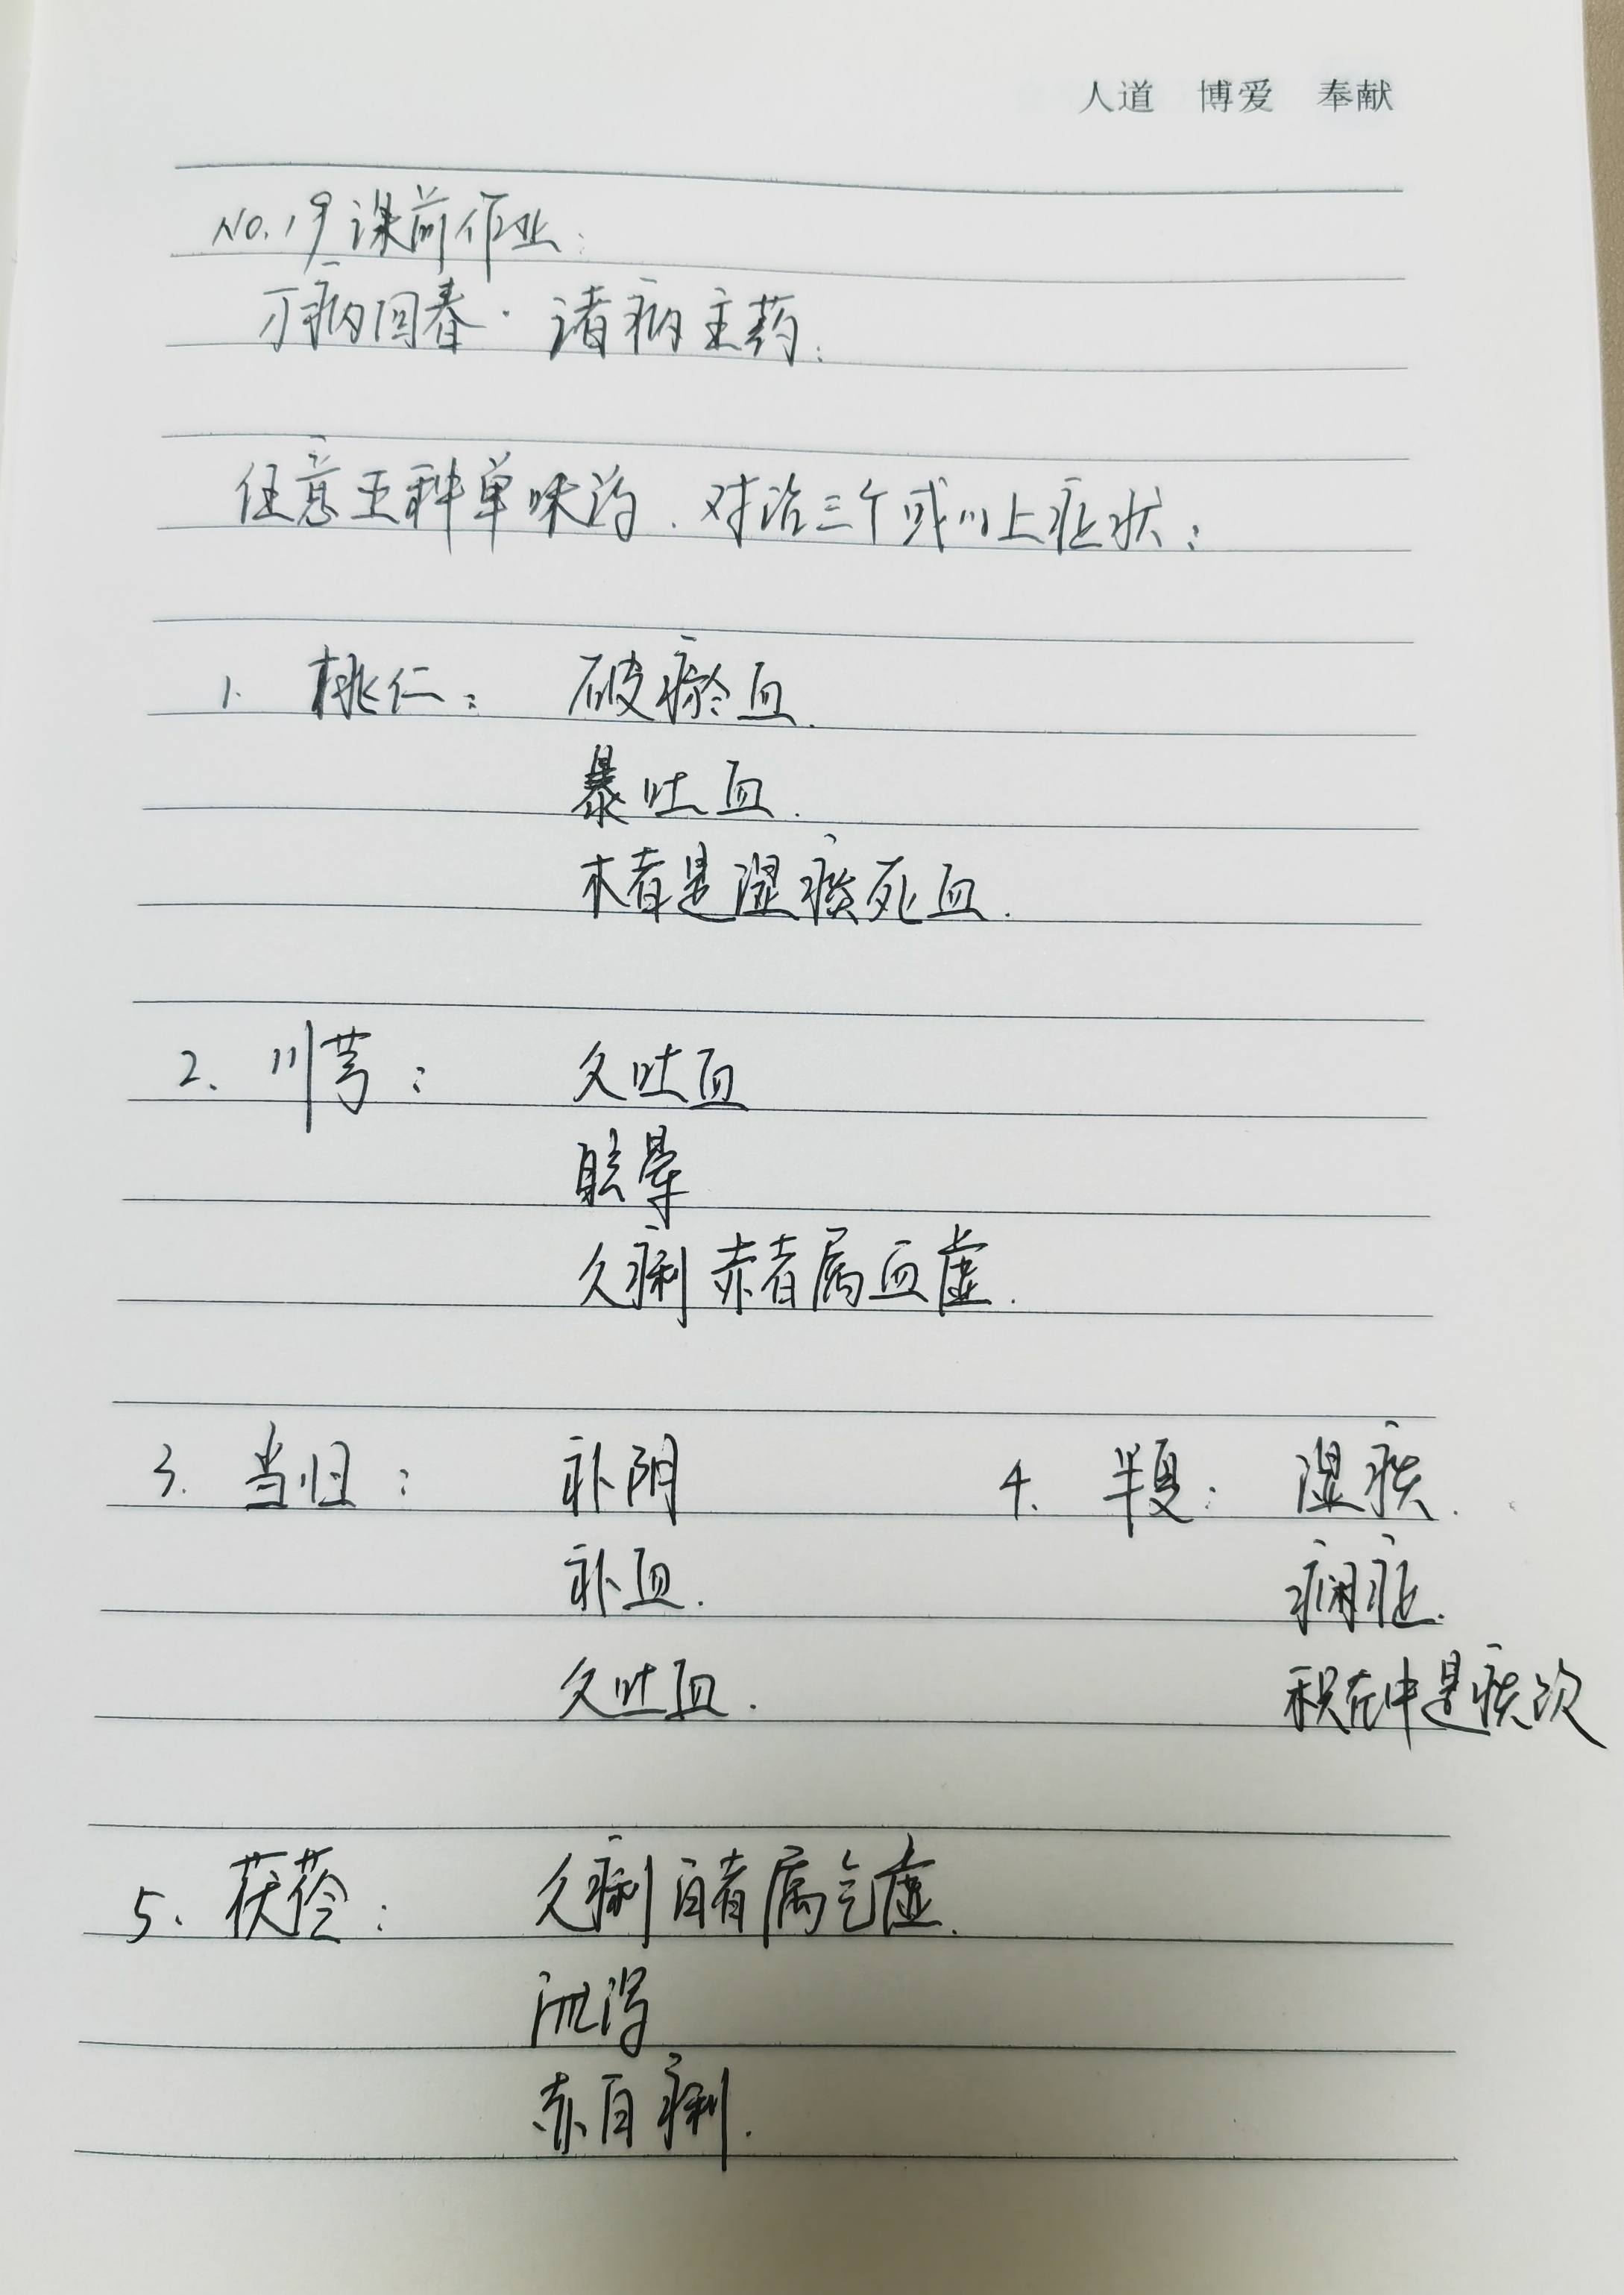 人道 博爱 奉献
NO.19课前作业:
万病回春·诸病主药:
任意五种单味药.对治三个或以上症状:
1. 桃仁: 破瘀血.
暴吐血.
木者是湿痰死血.
2. 川芎: 久吐血
眩晕
久痢赤者属血虚.
3. 当归: 补阴
补血.
久吐血.
4. 半夏: 湿痰.
痫症.
积在中是痰饮
5. 茯苓: 久痢白者属气虚.
泄泻
赤白痢.